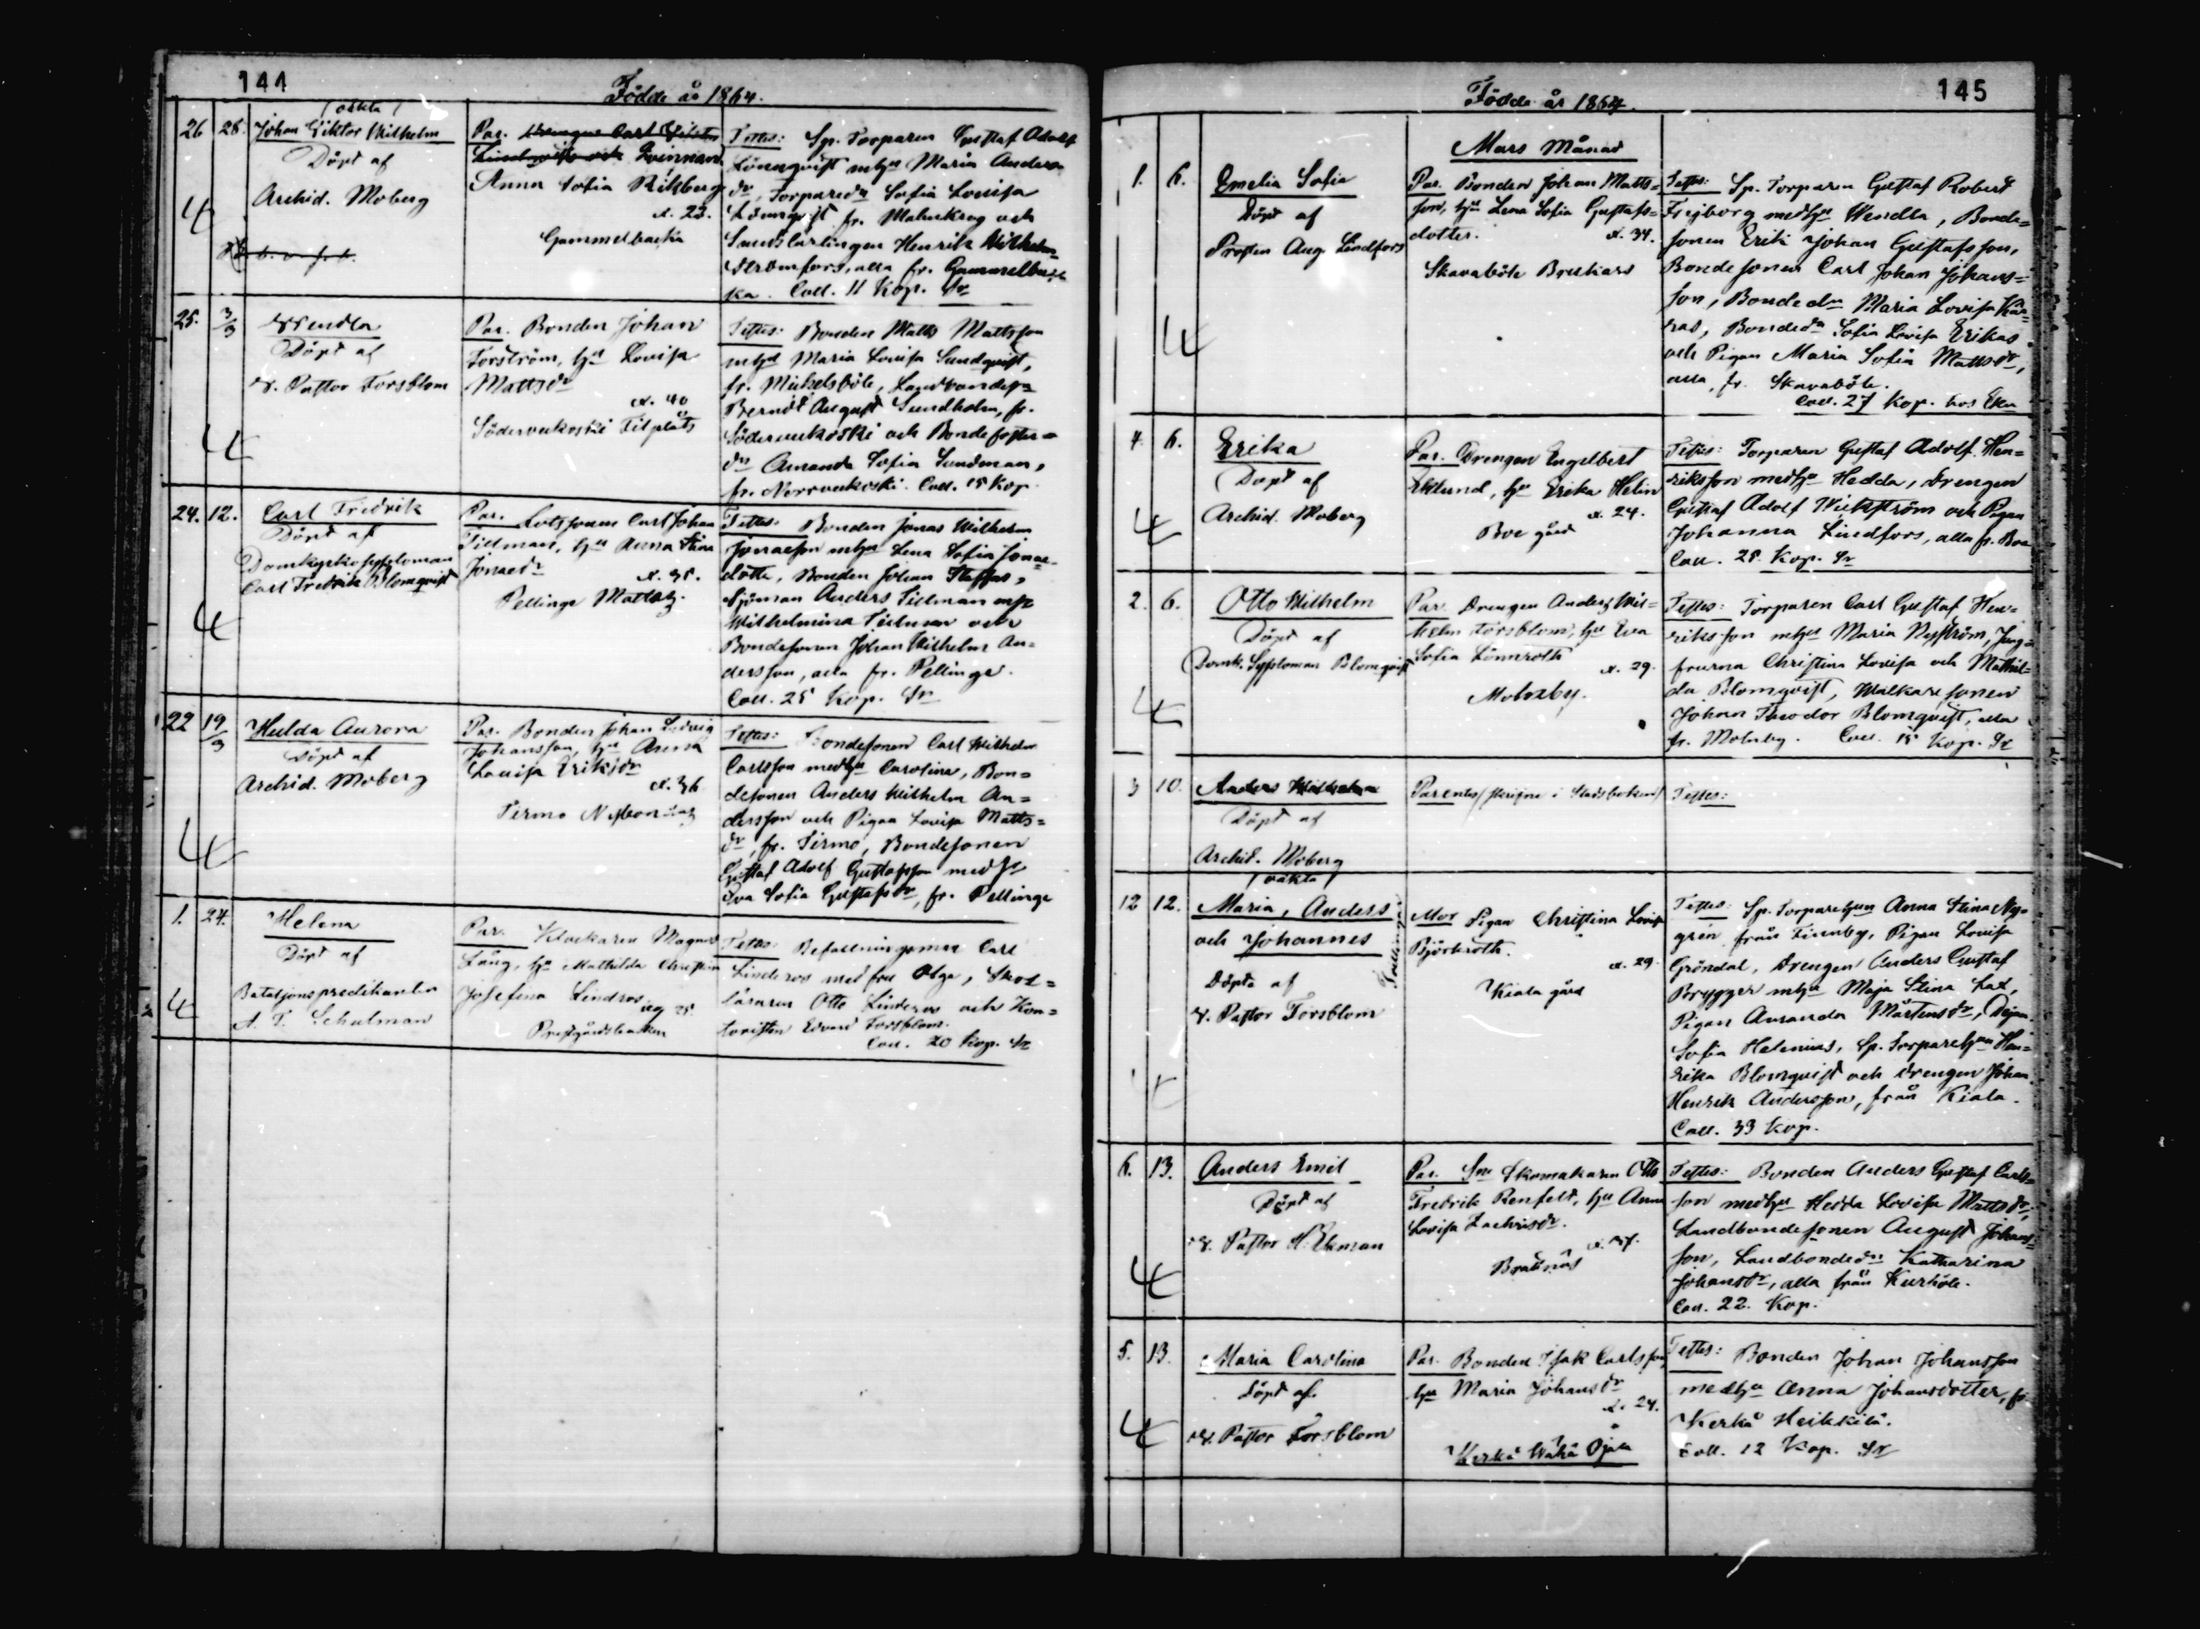 144
Födde år 1864.
(oäkta)
26 28. Johan Viktor Wilhelm
Döpt af
Archid. Moberg
Par. Drengen Carl
Qvinnan
Anna Sofia Rikberg
. 23.
Gammelbacka
Testes: Sp. Torparen Gustaf Adolf
Lönnqvist mhu Maria Anders
dr, Torparedr Sofia Lovisa
Lönnqvist fr. Malmkrog och
Henrik Wilhelm
Strömfors, alla fr. Gammelbac
ka. Coll. 11 Kop. Sr
25. 3/3 Wendla
Döpt af
v. Pastor Forsblom
Par. Bonden Johan
Forström, hu Lovisa
Mattsdr
. 40
Söderveckoski Filpäls
Testes: Bonden Matts Mattsson
mhu Maria Lovisa Sundqvist,
fr. Mickelsböle,
Berndt August Sundholm, fr.
Söderveckoski och Bonde
dr Amanda Sofia Sundman,
fr. Norrveckoski. Coll. 15 Kop.
24. 12. Carl Fredrik
Döpt af
Domkyrkosyssloman
Carl Fredrik Blomqvist
Par. Lotsman Carl Johan
Tillman, hu Anna Stina
Jonaedr
. 35.
Pellinge Mattas
Testes: Bonden Jonas Wilhelm
Jonaesson mhu Lena Sofia Jonae
dotter, Bonden Johan Staffas,
Sjöman Anders Tillman mhu
Wilhelmina Tillman och
Bondesonen Johan Wilhelm An=
dersson, alla fr. Pellinge.
Coll. 25 Kop. Sr
22 19/3 Hulda Aurora
Döpt af
Archid. Moberg
Par. Bonden Johan Ludvig
Johansson, hu Anna
Lovisa Eriksdr
. 36
Tirmo
Testes: Bondesonen Carl Wilhelm
Carlsson medhu Carolina, Bon=
desonen Anders Wilhelm An=
dersson och Pigan Lovisa Matts=
dr, fr. Tirmo, Bondesonen
Gustaf Adolf Gustafsson med hu
Eva Sofia Gustafsdr, fr. Pellinge
1. 24. Helena
Döpt af
Bataljonspredikanten
A. T. Schulman
Par. Klockaren Magnus
Lång, hu Mathilda Christina
Josefina Lindros
25
Prestgårdsbacken
Testes: Befallningsman Carl
Linderos med fru Olga, Skol=
läraren Otto Linderos och Kan=
toristen Edvard Forsblom.
Coll. 20 Kop. Sr
145
Födde år 1864.
Mars Månad
1. 6. Emelia Sofia
Döpt af
Prosten Aug. Lindfors
Par. Bonden Johan Matts=
son, hu Lena Sofia Gustafs=
dotter.
. 34.
Skavaböle Bruskars
Testes: Sp. Torparen Gustaf Robert
Frigborg medhu Wendla, Bonde=
sonen Erik Johan Gustafsson,
Bondesonen Carl Johan Johans=
son, Bondedr Maria Lovisa
Bondedr Sofia Lovisa Erikas
och Pigan Maria Sofia Mattsdr,
alla fr. Skavaböle.
Coll. 27 Kop. hos
4. 6. Erika
Döpt af
Archid. Moberg
Par. Drengen Engelbert
Eklund, hu Erika Helin
. 24.
Boe gård
Testes: Torparen Gustaf Adolf Hen=
riksson medhu Hedda, Drengen
Gustaf Adolf Wickström och Pigan
Johanna Lindfors, alla fr. Boe
Coll. 25. Kop. Sr
2. 6. Otto Wilhelm
Döpt af
Domk. Sysloman Blomqvist
Par. Drengen Anders Wil=
helm Forsblom, hu Eva
Sofia Lönnroth
. 29.
Molnby.
Testes: Torparen Carl Gustaf Hen=
riksson mhu Maria Nyström, Jung=
frurna Christina Lovisa och Mathil=
da Blomqvist, Walkaresonen
Johan Theodor Blomqvist, alla
fr. Molnby. Coll. 15 Kop. Sr
3 10. Anders Wilhelm
Döpt af
Archid. Moberg
Parentes (skrifne i Stadsboken) Testes:
(oäkta)
12 12. Maria, Anders
och Johannes
Trillingar
Döpte af
v. Pastor Forsblom
Mor Pigan Christina Lovisa
Björkroth.
. 29.
Kiala gård
Testes: Sp. Torparehun Anna Stina Ny=
grén från Finnby, Pigan Lovisa
Gröndal, Drengen Anders Gustaf
Brygger mhu Maja Stina
Pigan Amanda Mårtensdr, Pigan
Sofia Helenius, Sp. Torparehun Hen=
rika Blomqvist och Drengen Johan
Henrik Andersson, från Kiala.
Coll. 33 Kop.
6. 13. Anders Emil
Döpt af
v. Pastor H. Ekman
Par. Skomakaren Otto
Fredrik Renfelt, hu Anna
Lovisa Zachrisdr.
. 37.
Testes: Bonden Anders Gustaf Carls=
son medhu Hedda Lovisa Mattsdr,
Landbondesonen August Johans=
son, Landbondedr Katharina
Johansdr, alla från Kurböle.
Coll. 22. Kop.
5. 13. Maria Carolina
Döpt af.
v. Pastor Forsblom
Par. Bonden Isak Carlsson,
hu Maria Johansdr
. 24.
Kerko Wähä Ojala
Testes: Bonden Johan Johansson
medhu Anna Johansdotter, fr
Kerko Heikkilä.
Coll. 12 Kop. Sr